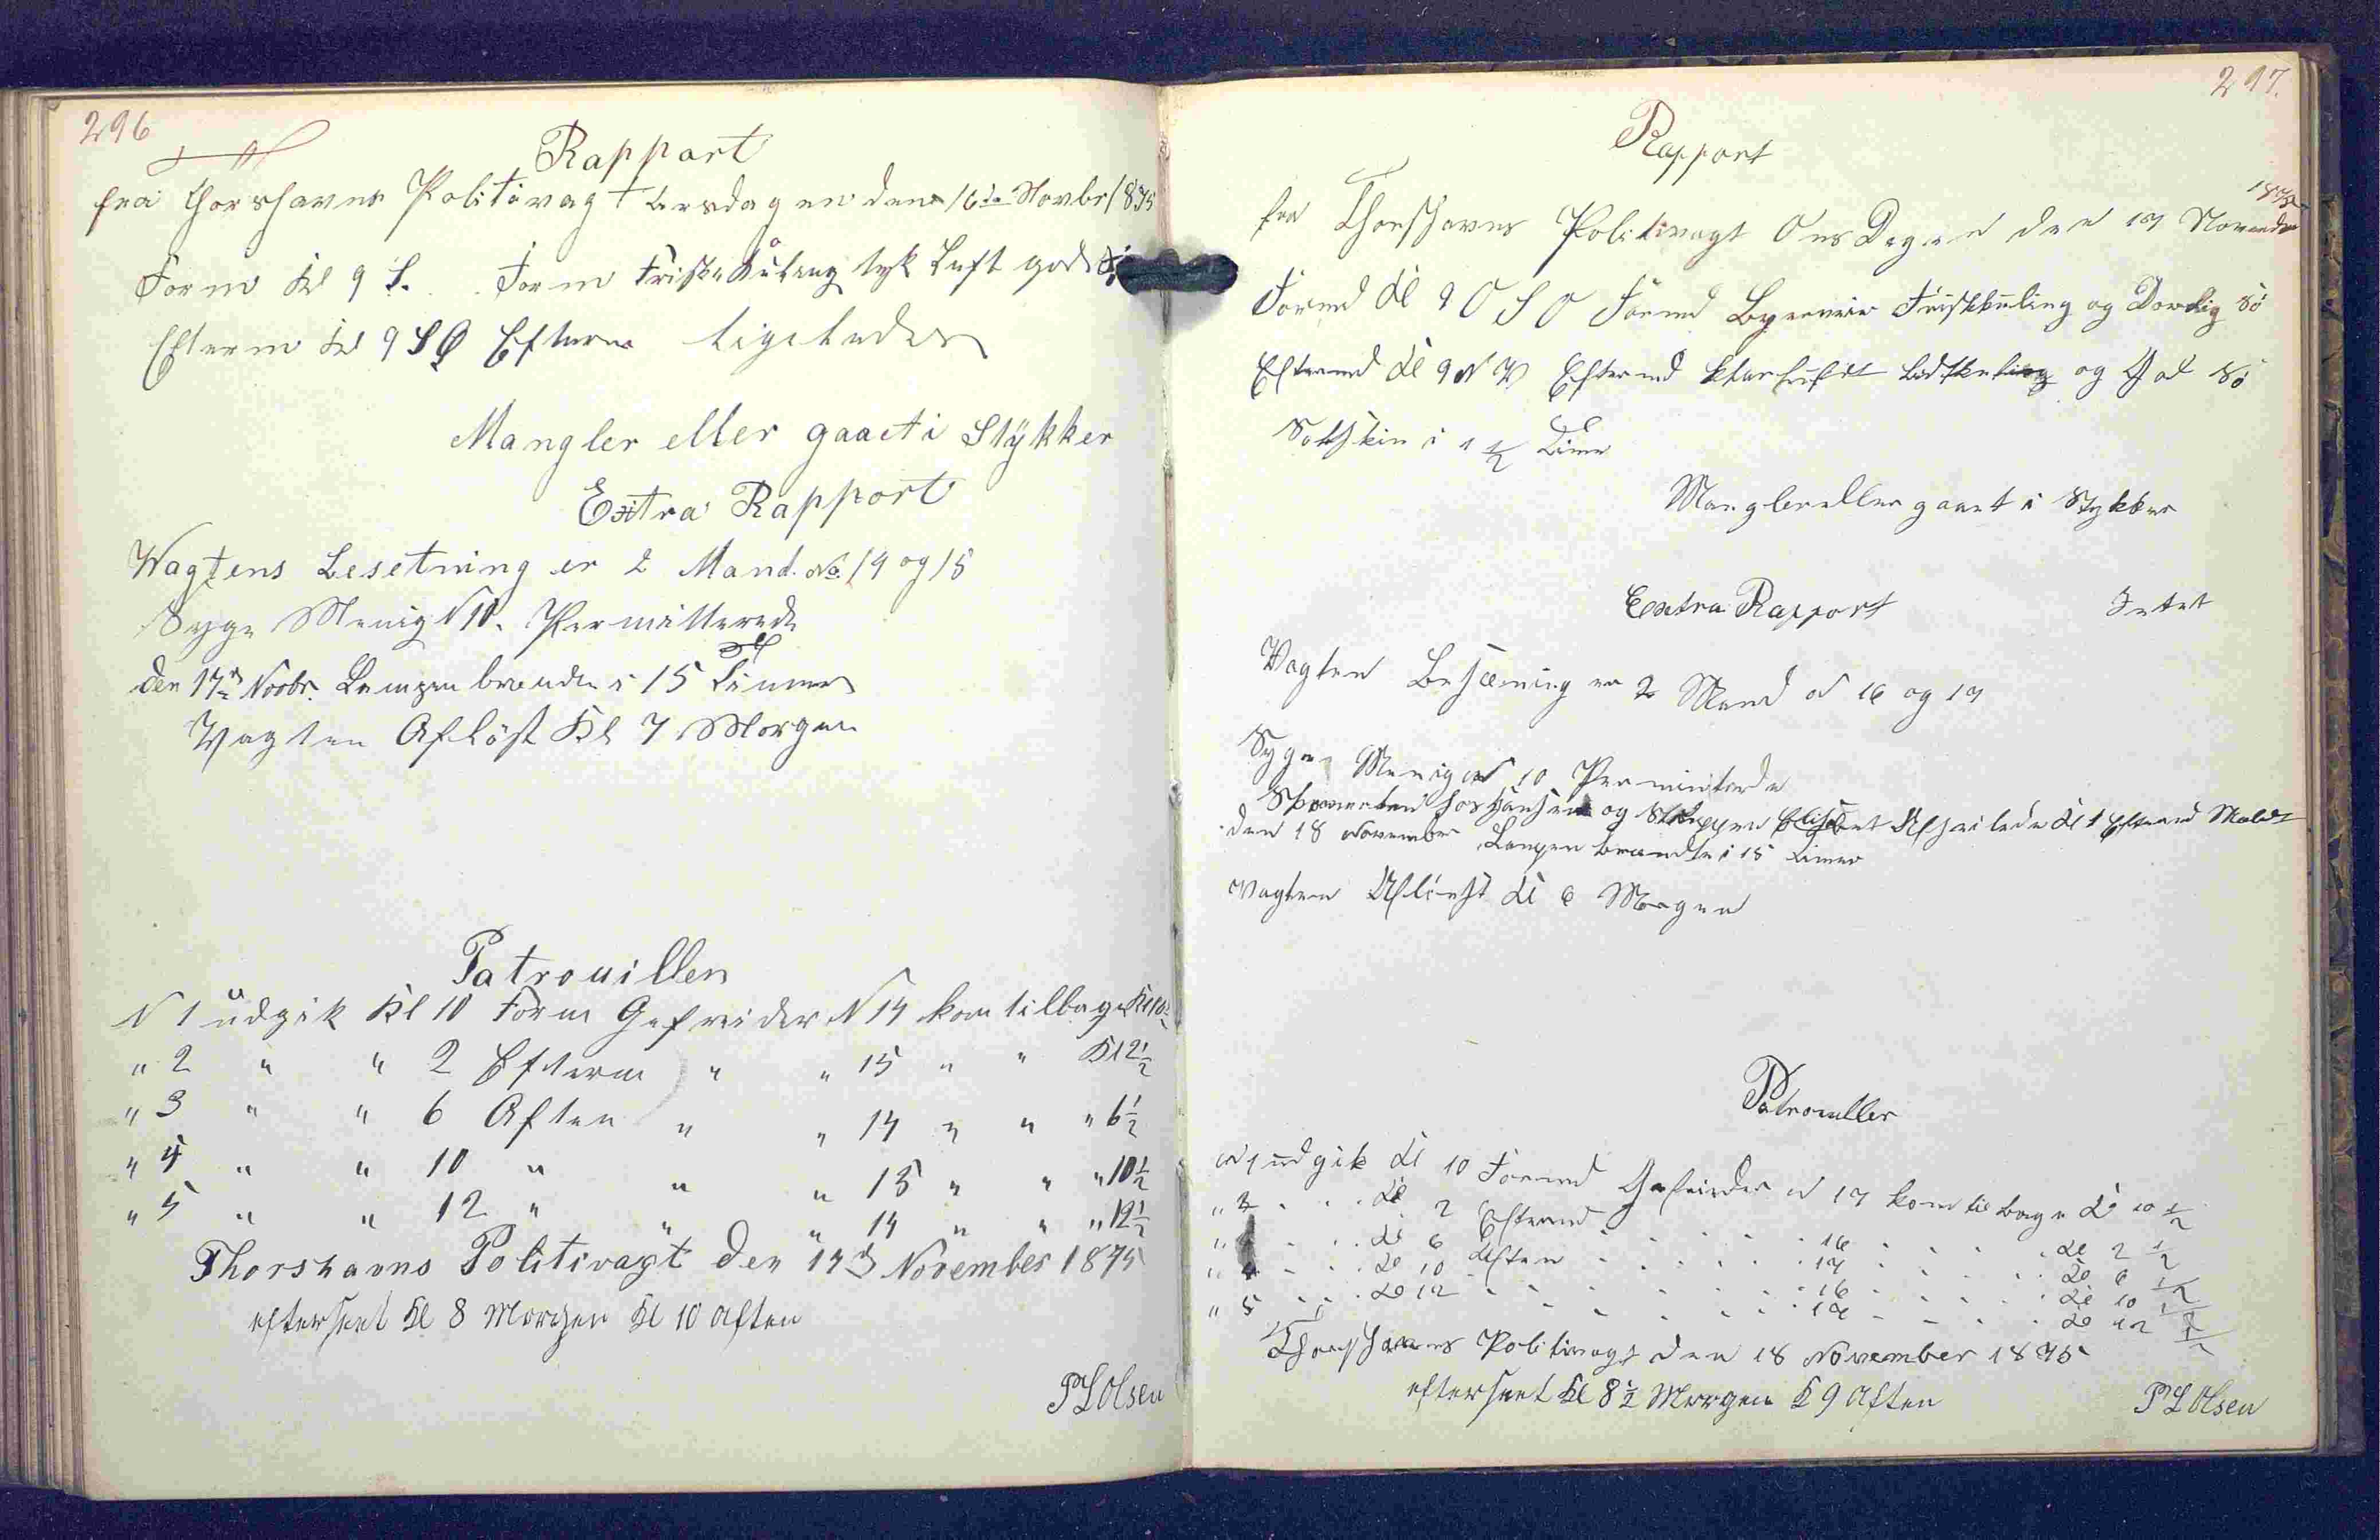 296
Rapport
fra Thorshavns Politivagt Tirsdagen den 16de Novbr 1875
Form Kl 9 S. Form Frisk Kuling tyk Luft god
Efterm Kl 9 SO Efterm ligeledes
Mangler eller gaaet i Stykker
Extra Rapport
Wagtens Besetning er 2 Mand. No. 14 og 15
Syge Menig N 10. Permitterede
den 17d Novbr. Lampen brændte i 15 Timer
Vagten Afløst Kl 7 Morgen
Patrouillen
N 1 udgik Kl 10 Form Gefreider N 14 kom tilbage Kl 10½
" 2 " " 2 Efterm " " 15 " " Kl 2½
" 3 " " 6 Aften " " 14 " " " 6½
" 4 " " 10 " " " 15 " " " 10½
" 5 " " 12 " " " 14 " " " 12½
Thorshavns Politivagt den 17d November 1875
efterseet Kl 8 Morgen Kl 10 Aften
P L Olsen
297.
Rapport
fra Thorshavns Politivagt Ons Dagen den 17 November 1875
Formd Kl 9 O S O Formd Frisk kuling og Dorlig Sö
Eftermd Kl 9 N V Eftermd og God Sö
Solskin i 1 ½ Time
Mangler eller gaaet i Stykker
Extra Rapport Intet
Vagten Besætning er 2 Mand N 16 og 17
Syge Menig N 10 Permiterede
og Sluppen Afseilede Kl 1 Eftermd
den 18 November Lampen brændte i 15 Timer
Vagten Aflöst Kl 6 Morgen
Patrouller
N 1 udgik Kl 10 Formd Gefreider N 17 kom tilbage Kl 10 ½
" 2 " " Kl 2 Eftermd " " 16 " " Kl 2 ½
" " " Kl 6 Aften " " 17 " " Kl 6 ½
" 4 " " Kl 10 " " 16 " " Kl 10 ½
" 5 " " Kl 12 " " 17 " " Kl 12 ½
Thorshavns Politivagt den 18 November 1875
efterseet Kl 8½ Morgen K 9 Aften
P L Olsen